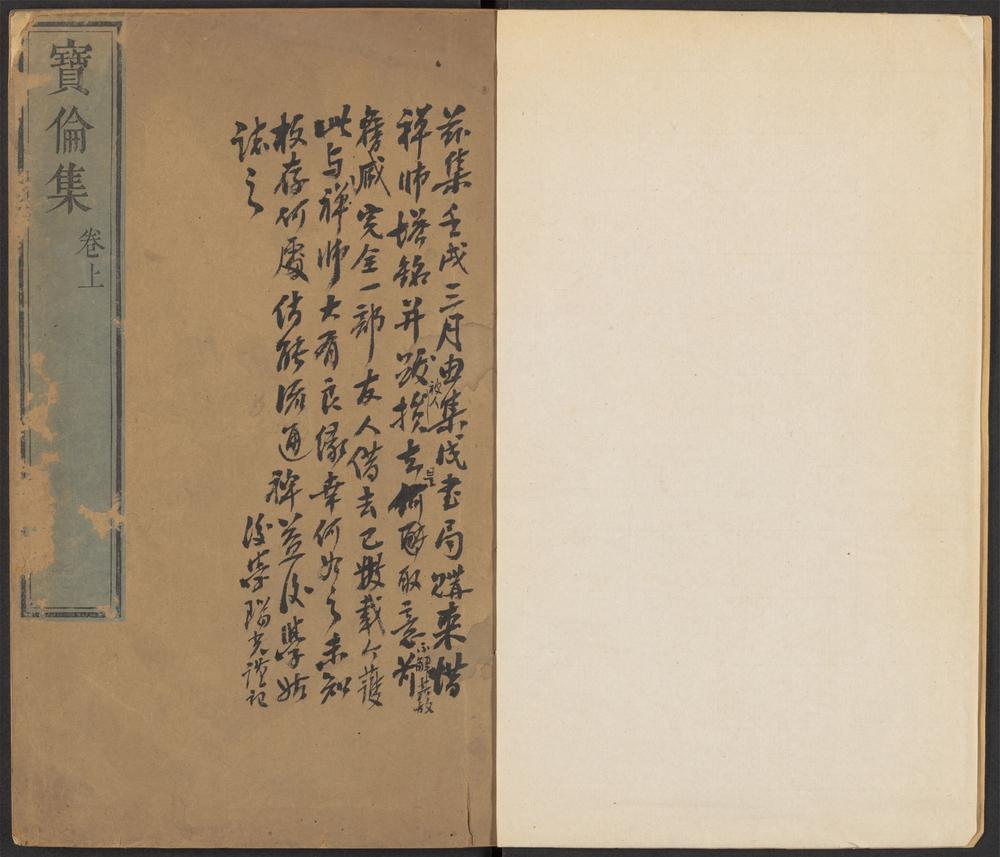 寶倫集
卷上
茲集壬戌三月由集成書局購來惜
禪師塔銘并跋被人挨去是何酔取意
不解其故
舊藏完全一部友人借去已數載今獲
此与禪師大有良緣幸何如之未知
板存何處倘能流通裨益後學姑
誌之
後學瑞光謹記